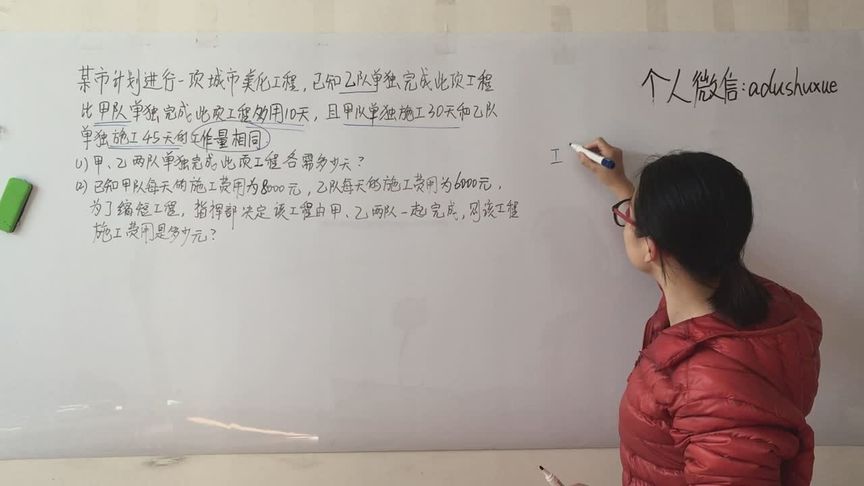 某市计划进行一项城市美化工程，已知乙队单独完成此项工程
比甲队单独完成此项工程多用10天，且甲队单独施工30天和乙队
单独施工45天的工作量相同
(1) 甲、乙两队单独完成此项工程各需多少天？
(2) 已知甲队每天的施工费用为8000元，乙队每天的施工费用为6000元，
为了缩短工程，指挥部决定该工程由甲、乙两队一起完成，则该工程
施工费用是多少元？
个人微信:adushuxue
工